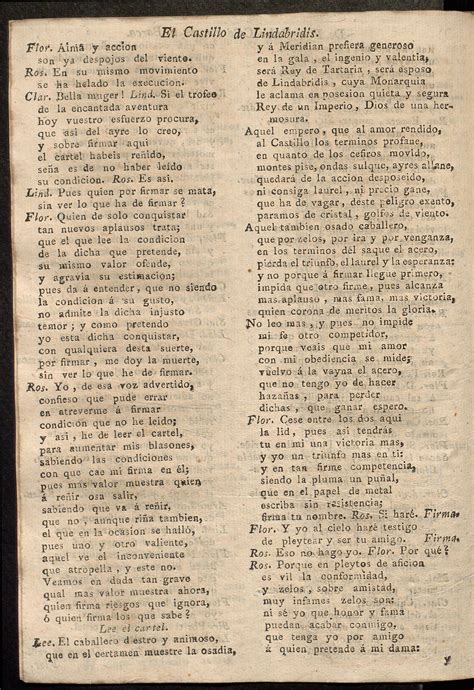 El Castillo de Lindabridis.
Flor. Alma y accion
son ya despojos del viento.
Ros. En su mismo movimiento
se ha helado la execucion.
Clar. Bella muger! Lind. Si el trofeo
de la encantada aventura
hoy vuestro esfuerzo procura,
que asi del ayre lo creo,
y sobre firmar aqui
el cartel habeis reñido,
seña es de no haber leido
su condicion. Ros. Es asi.
Lind. Pues quien por firmar se mata,
sin ver lo que ha de firmar?
Flor. Quien de solo conquistar
tan nuevos aplausos trata;
que el que lee la condicion
de la dicha que pretende,
su mismo valor ofende,
y agravia su estimacion;
pues da á entender, que no siendo
la condicion á su gusto,
no admite la dicha injusto
temor; y como pretendo
yo esta dicha conquistar,
con qualquiera desta suerte,
por firmar, me doy la muerte,
sin ver lo que he de firmar.
Ros. Yo, de esa voz advertido,
confieso que pude errar
en atreverme á firmar
condicion que no he leido;
y asi, he de leer el cartel,
para aumentar mis blasones,
sabiendo las condiciones
con que cae mi firma en él;
pues mas valor muestra quien
á reñir osa salir,
sabiendo que va á reñir,
que no, aunque riña tambien,
el que en la ocasion se halló,
pues uno y otro valiente,
aquel ve el inconveniente
que atropella, y este no.
Veamos en duda tan grave
qual mas valor muestra ahora,
quien firma riesgos que ignora,
ó quien firma los que sabe?
Lee el cartel.
Lee. El caballero diestro y animoso,
que en el certamen muestre la osadia,
y á Meridian prefiera generoso
en la gala, el ingenio y valentia,
será Rey de Tartaria, será esposo
de Lindabridis, cuya Monarquia
le aclama en posesion quieta y segura
Rey de un Imperio, Dios de una her-
mosura.
Aquel empero, que al amor rendido,
al Castillo los terminos profane,
en quanto de los cefiros movido,
montes pise, ondas sulque, ayres allane,
quedará de la accion desposeido,
ni consiga laurel, ni precio gane,
que ha de vagar, deste peligro exento,
paramos de cristal, golfos de viento.
Aquel tambien osado caballero,
que por zelos, por ira y por venganza,
en los terminos del saque el acero,
pierda el triunfo, el laurel y la esperanza;
y no porque á firmar llegue primero,
impida que otro firme, pues alcanza
mas aplauso, mas fama, mas victoria,
quien corona de meritos la gloria.
No leo mas, y pues no impide
mi fe otro competidor,
porque veais que mi amor
con mi obediencia se mide;
vuelvo á la vayna el acero,
que no tengo yo de hacer
hazañas, para perder
dichas, que ganar espero.
Flor. Cese entre los dos aqui
la lid, pues asi tendrás
tu en mi una victoria mas,
y yo un triunfo mas en ti:
y en tan firme competencia,
siendo la pluma un puñal,
que en el papel de metal
escriba sin resistencia;
firma tu nombre. Ros. Si haré. Firma.
Flor. Y yo al cielo haré testigo
de pleytear y ser tu amigo. Firma.
Ros. Eso no hago yo. Flor. Por qué?
Ros. Porque en pleytos de aficion
es vil la conformidad,
y zelos, sobre amistad,
muy infames zelos son:
ni sé yo que honor y fama
puedan acabar conmigo,
que tenga yo por amigo
á quien pretende á mi dama:
y